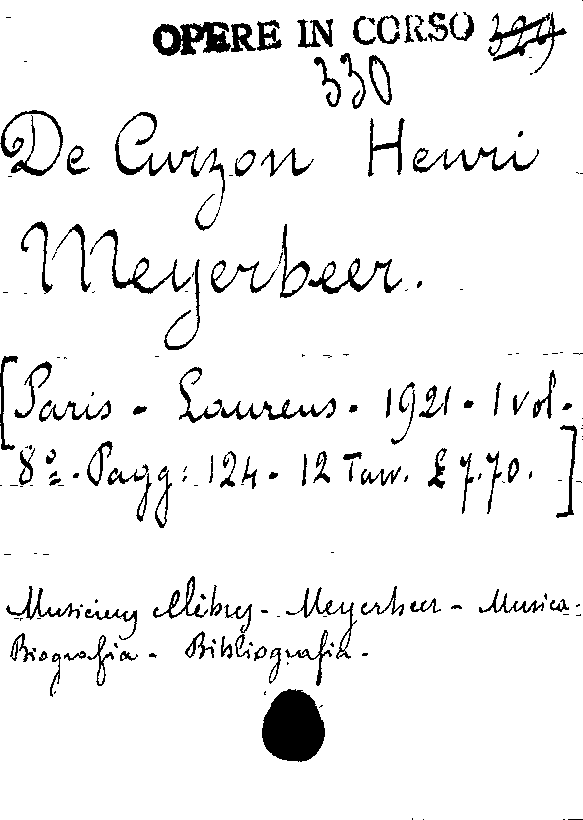 OPERE IN CORSO 329
330
De Curzon Henri
Meyerbeer.
[Paris - Laurens - 1921 - 1 vol.
8º - Pagg: 124 - 12 Tavv. £ 7.70.]
Musiciens Célèbres - Meyerbeer - Musica -
Biografia - Bibliografia -